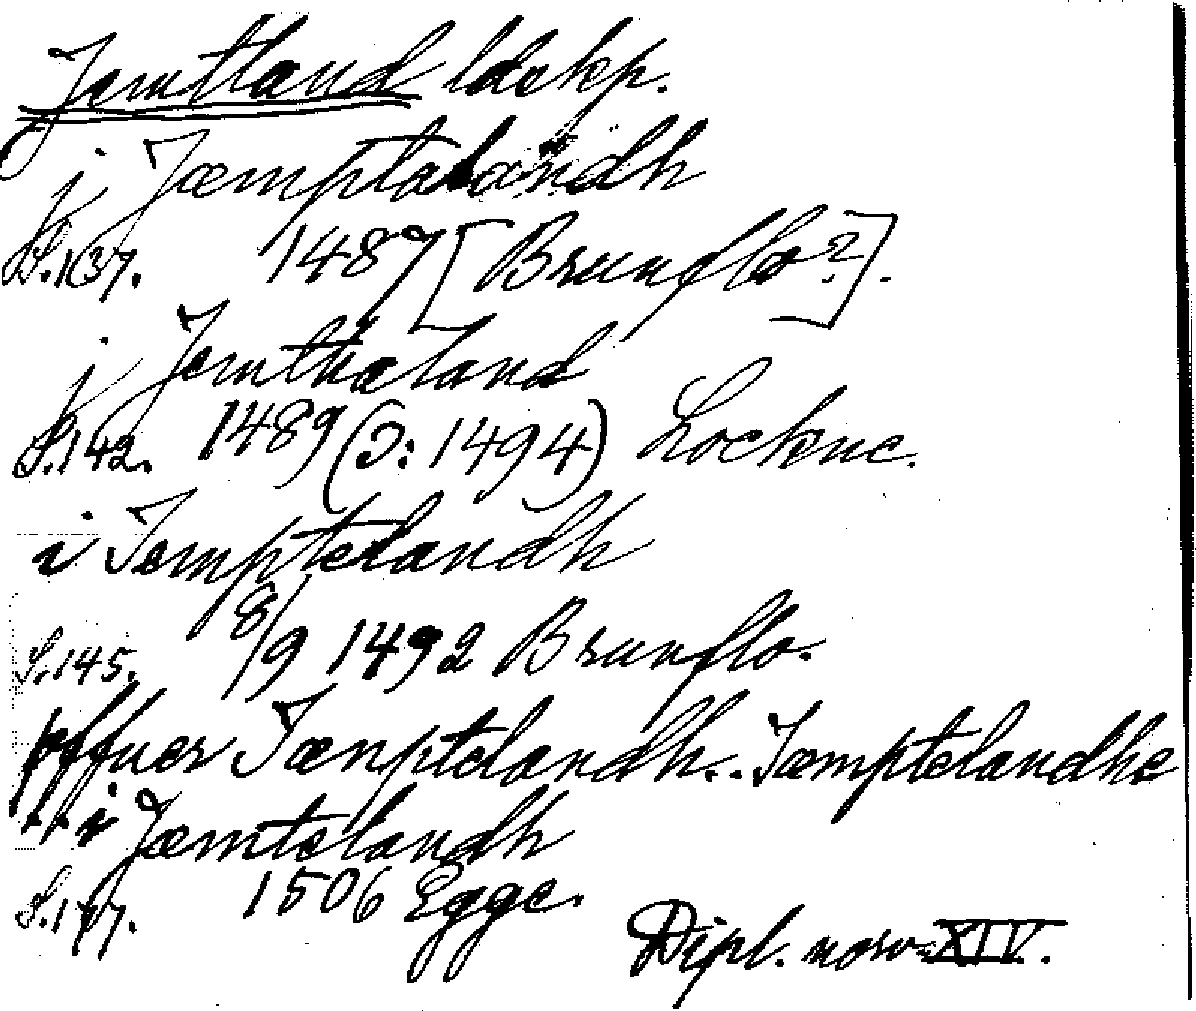 Jemtland ldskp.
j Jæmptalandh
S. 137. 1487 [Brunflo?].
j Jemthæland
S. 142. 1489 (ɔ: 1494) Lockne.
i Jemptelandh
S. 145. 8/9 1492 Brunflo.
Jænptelandh.. Jæmptelandhe
.. i Jæmtelandh
1506 Egge.
Dipl. norv. XIV.